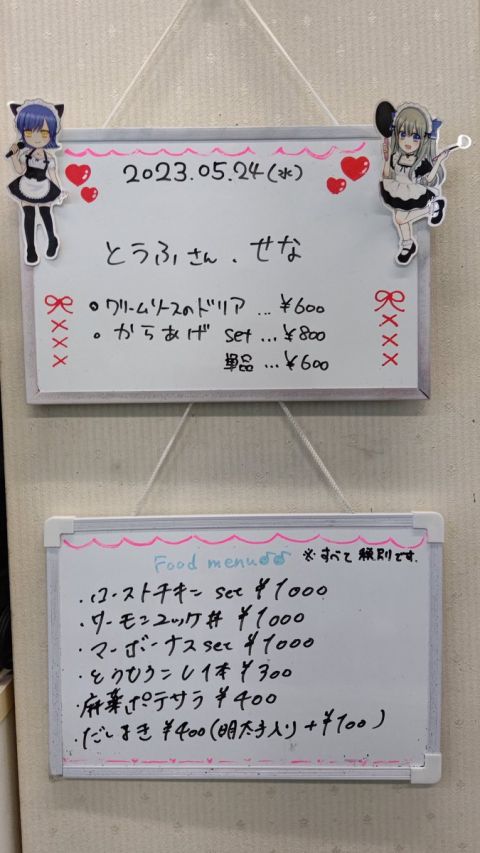 2023.05.24(水)
とうふさん、せな
• クリームソースのドリア … ¥600
• からあげ set … ¥800
単品 … ¥600
Food menu♫♫ ※すべて税別です。
・ローストチキン set ¥1000
・サーモンユッケ丼 ¥1000
・マーボーナス set ¥1000
・とうもろこし 1本 ¥300
・麻薬ポテサラ ¥400
・だしまき ¥400(明太子入り +¥100)